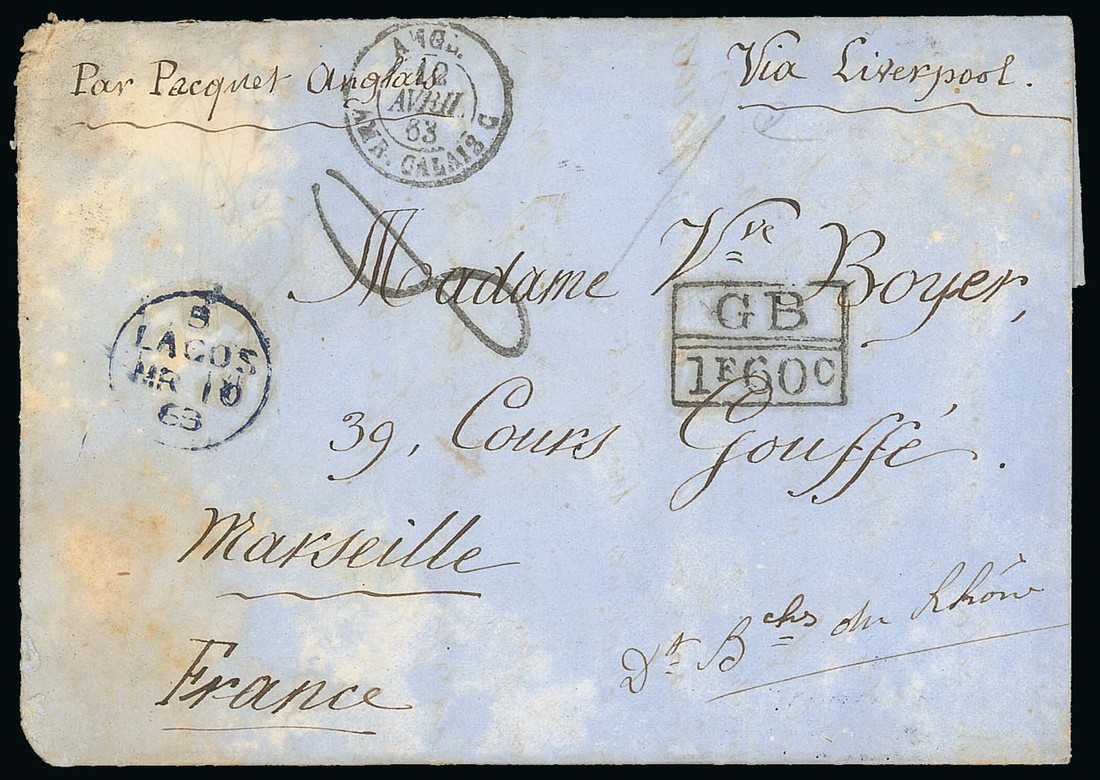 Par Pacquet Anglais
Via Liverpool.
ANGL.
12
AVRIL
63
AMB. CALAIS G
Madame Vve Boyer,
GB
1F60C
B
LAGOS
MR 10
63
39, Cours Gouffé.
Marseille
France
Dt. Bchs du Rhône